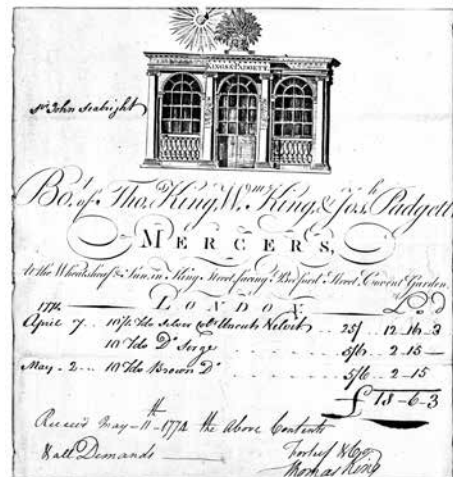 KING & PADGETT
Sr. John Seabright
Bot. of Thos. King, Wm. King, & Josh. Padgett
MERCERS,
at the Wheatsheaf & Sun, in King Street, facing Bedford Street, Covent Garden.
LONDON £ s d
1774
April 7 .. 10¼ Yds Silver Uncut Velvit 25/ .. 12 - 16 - 3
10 Yds Do. Serge 5/6 .. 2 - 15 -
May - 2 .. 10 Yds Brown Do. 5/6 .. 2 - 15
£ 18 - 6 - 3
Receiv'd May - 11th - 1774 the Above Contents
& all Demands
& Co.
Thomas King